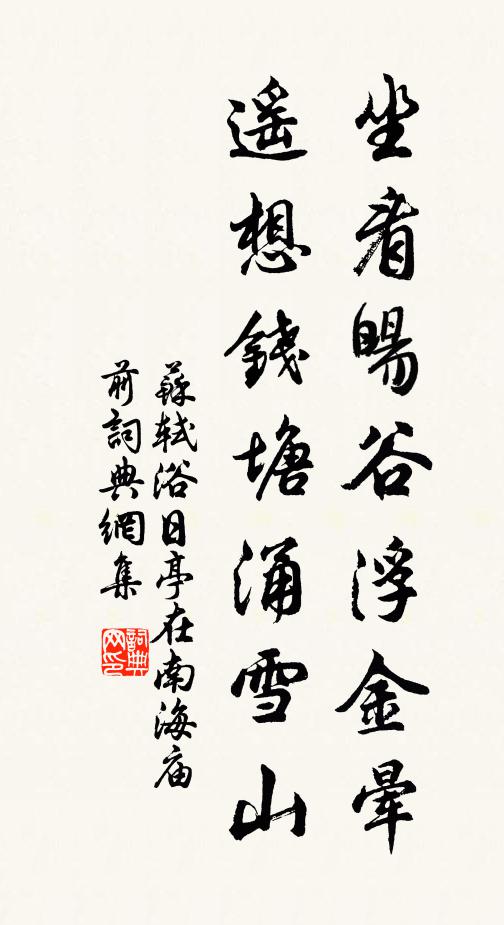 坐看暘谷浮金暈
遥想錢塘涌雪山
蘇軾浴日亭在南海庙
前詞典網集
詞典网印